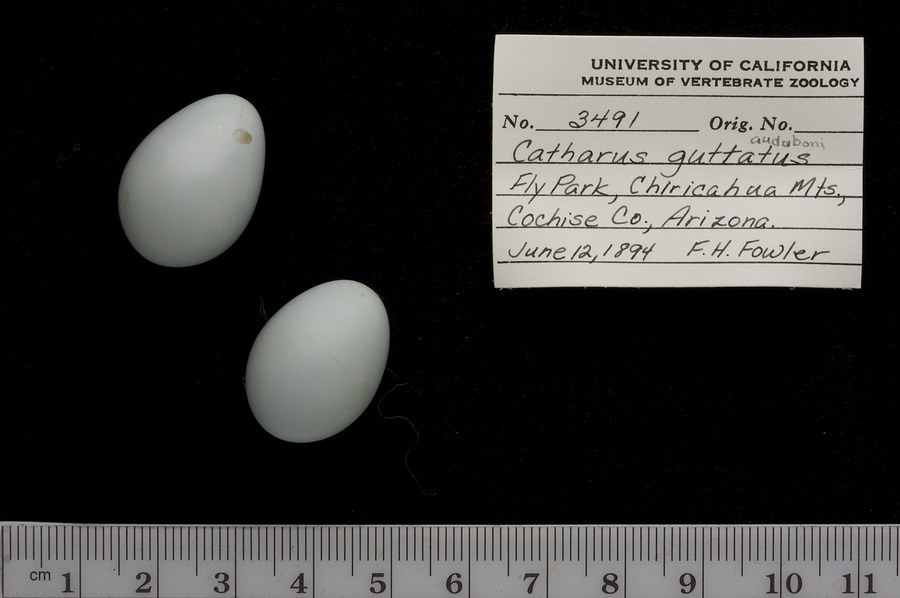 UNIVERSITY OF CALIFORNIA
MUSEUM OF VERTEBRATE ZOOLOGY
No. 3491 Orig. No.
auduboni
Catharus guttatus
Fly Park, Chiricahua Mts.,
Cochise Co., Arizona.
June 12, 1894 F.H. Fowler
cm 1 2 3 4 5 6 7 8 9 10 11